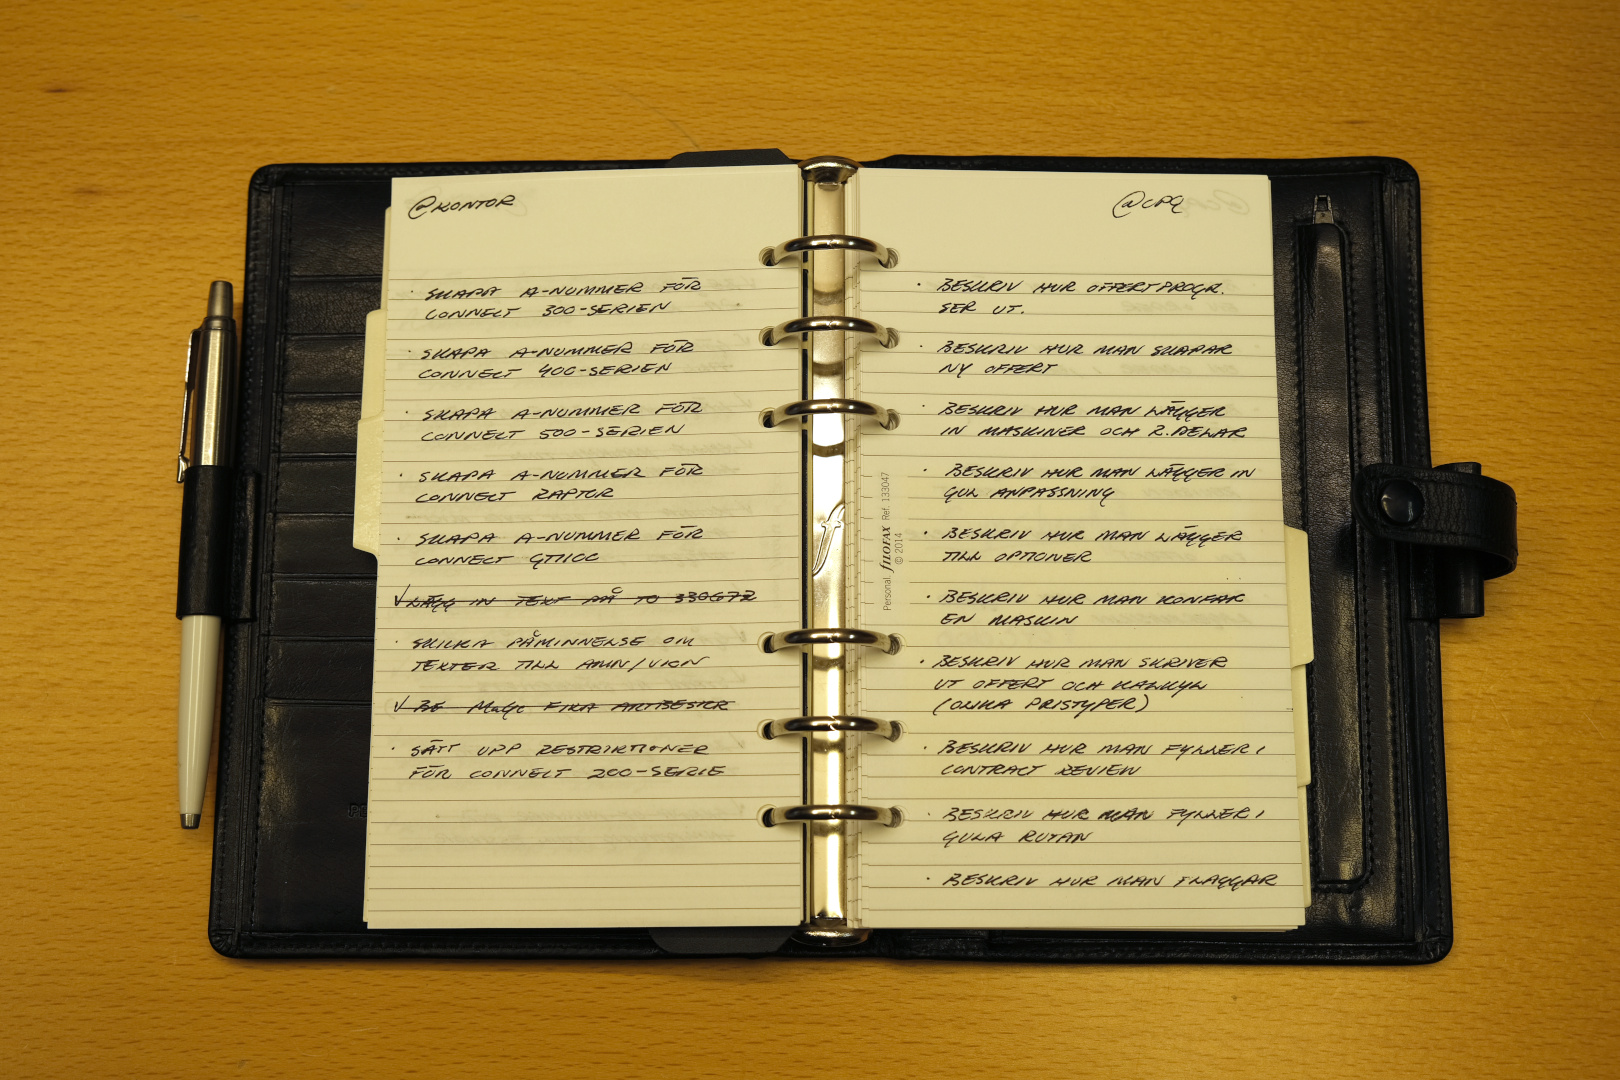 @KONTOR
· SKAPA A-NUMMER FÖR
CONNECT 300-SERIEN
· SKAPA A-NUMMER FÖR
CONNECT 400-SERIEN
· SKAPA A-NUMMER FÖR
CONNECT 500-SERIEN
· SKAPA A-NUMMER FÖR
CONNECT RAPTOR
· SKAPA A-NUMMER FÖR
CONNECT
√ LÄGG IN TEXT PÅ TO
· SKICKA PÅMINNELSE OM
TEXTER TILL
√ BE FIXA
· SÄTT UPP RESTRIKTIONER
FÖR CONNECT 200-SERIE
Personal filofax Ref. 133047
© 2014
@CPQ
· BESKRIV HUR OFFERTPROGR.
SER UT.
· BESKRIV HUR MAN SKAPAR
NY OFFERT
· BESKRIV HUR MAN LÄGGER
IN MASKINER OCH R.DELAR
· BESKRIV HUR MAN LÄGGER IN
GUL ANPASSNING
· BESKRIV HUR MAN LÄGGER
TILL OPTIONER
· BESKRIV HUR MAN KONFAR
EN MASKIN
· BESKRIV HUR MAN SKRIVER
UT OFFERT OCH KALKYL
(OLIKA PRISTYPER)
· BESKRIV HUR MAN FYLLER I
CONTRACT REVIEW
· BESKRIV HUR MAN FYLLER I
GULA RUTAN
· BESKRIV HUR MAN FLAGGAR